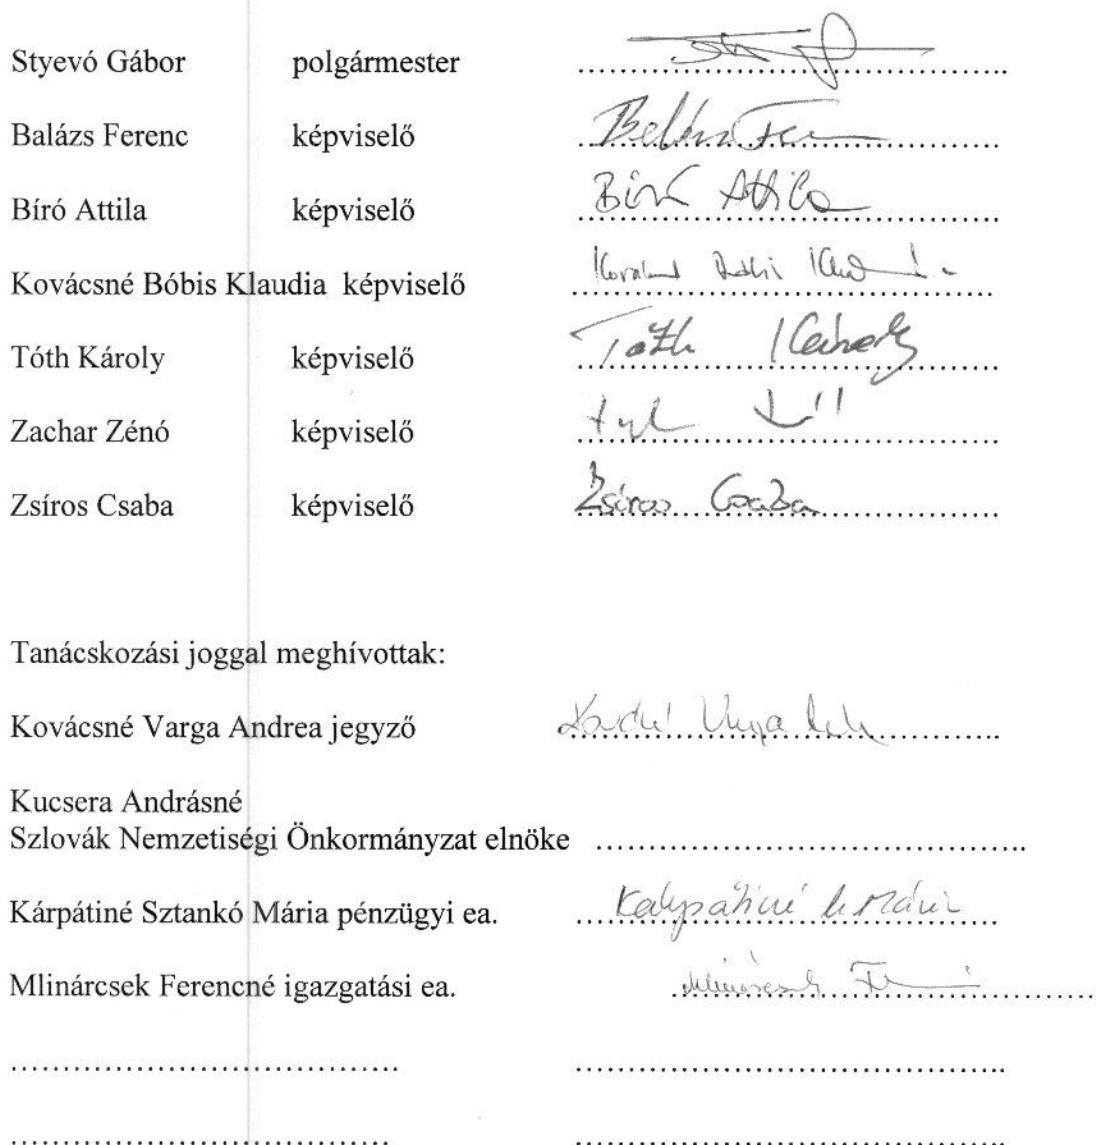 Styevó Gábor polgármester ..........
Balázs Ferenc képviselő ..........
Bíró Attila képviselő Bíró Attila
Kovácsné Bóbis Klaudia képviselő ..........
Tóth Károly képviselő Tóth Károly
Zachar Zénó képviselő ..........
Zsíros Csaba képviselő Zsíros Csaba
Tanácskozási joggal meghívottak:
Kovácsné Varga Andrea jegyző ..........
Kucsera Andrásné
Szlovák Nemzetiségi Önkormányzat elnöke ..........
Kárpátiné Sztankó Mária pénzügyi ea. Kárpátiné
Mlinárcsek Ferencné igazgatási ea. ..........